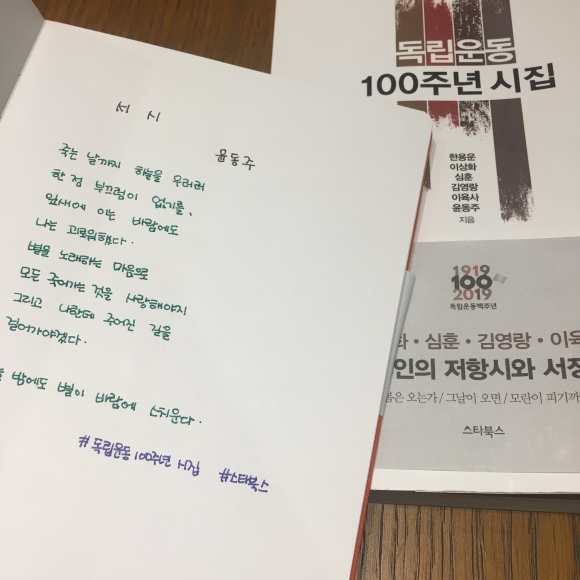 서 시
윤동주
죽는 날까지 하늘을 우러러
한 점 부끄럼이 없기를.
잎새에 이는 바람에도
나는 괴로워했다.
별을 노래하는 마음으로
모든 죽어가는 것을 사랑해야지
그리고 나한테 주어진 길을
걸어가야겠다.
밤에도 별이 바람에 스치운다.
#독립운동100주년 시집 #스타북스
독립운동
100주년 시집
한용운
이상화
심훈
김영랑
이육사
윤동주
지음
1919
100
2019
독립운동백주년
화·심훈·김영랑·이육
인의 저항시와 서정
봄은 오는가/그날이 오면/모란이 피기까
스타북스